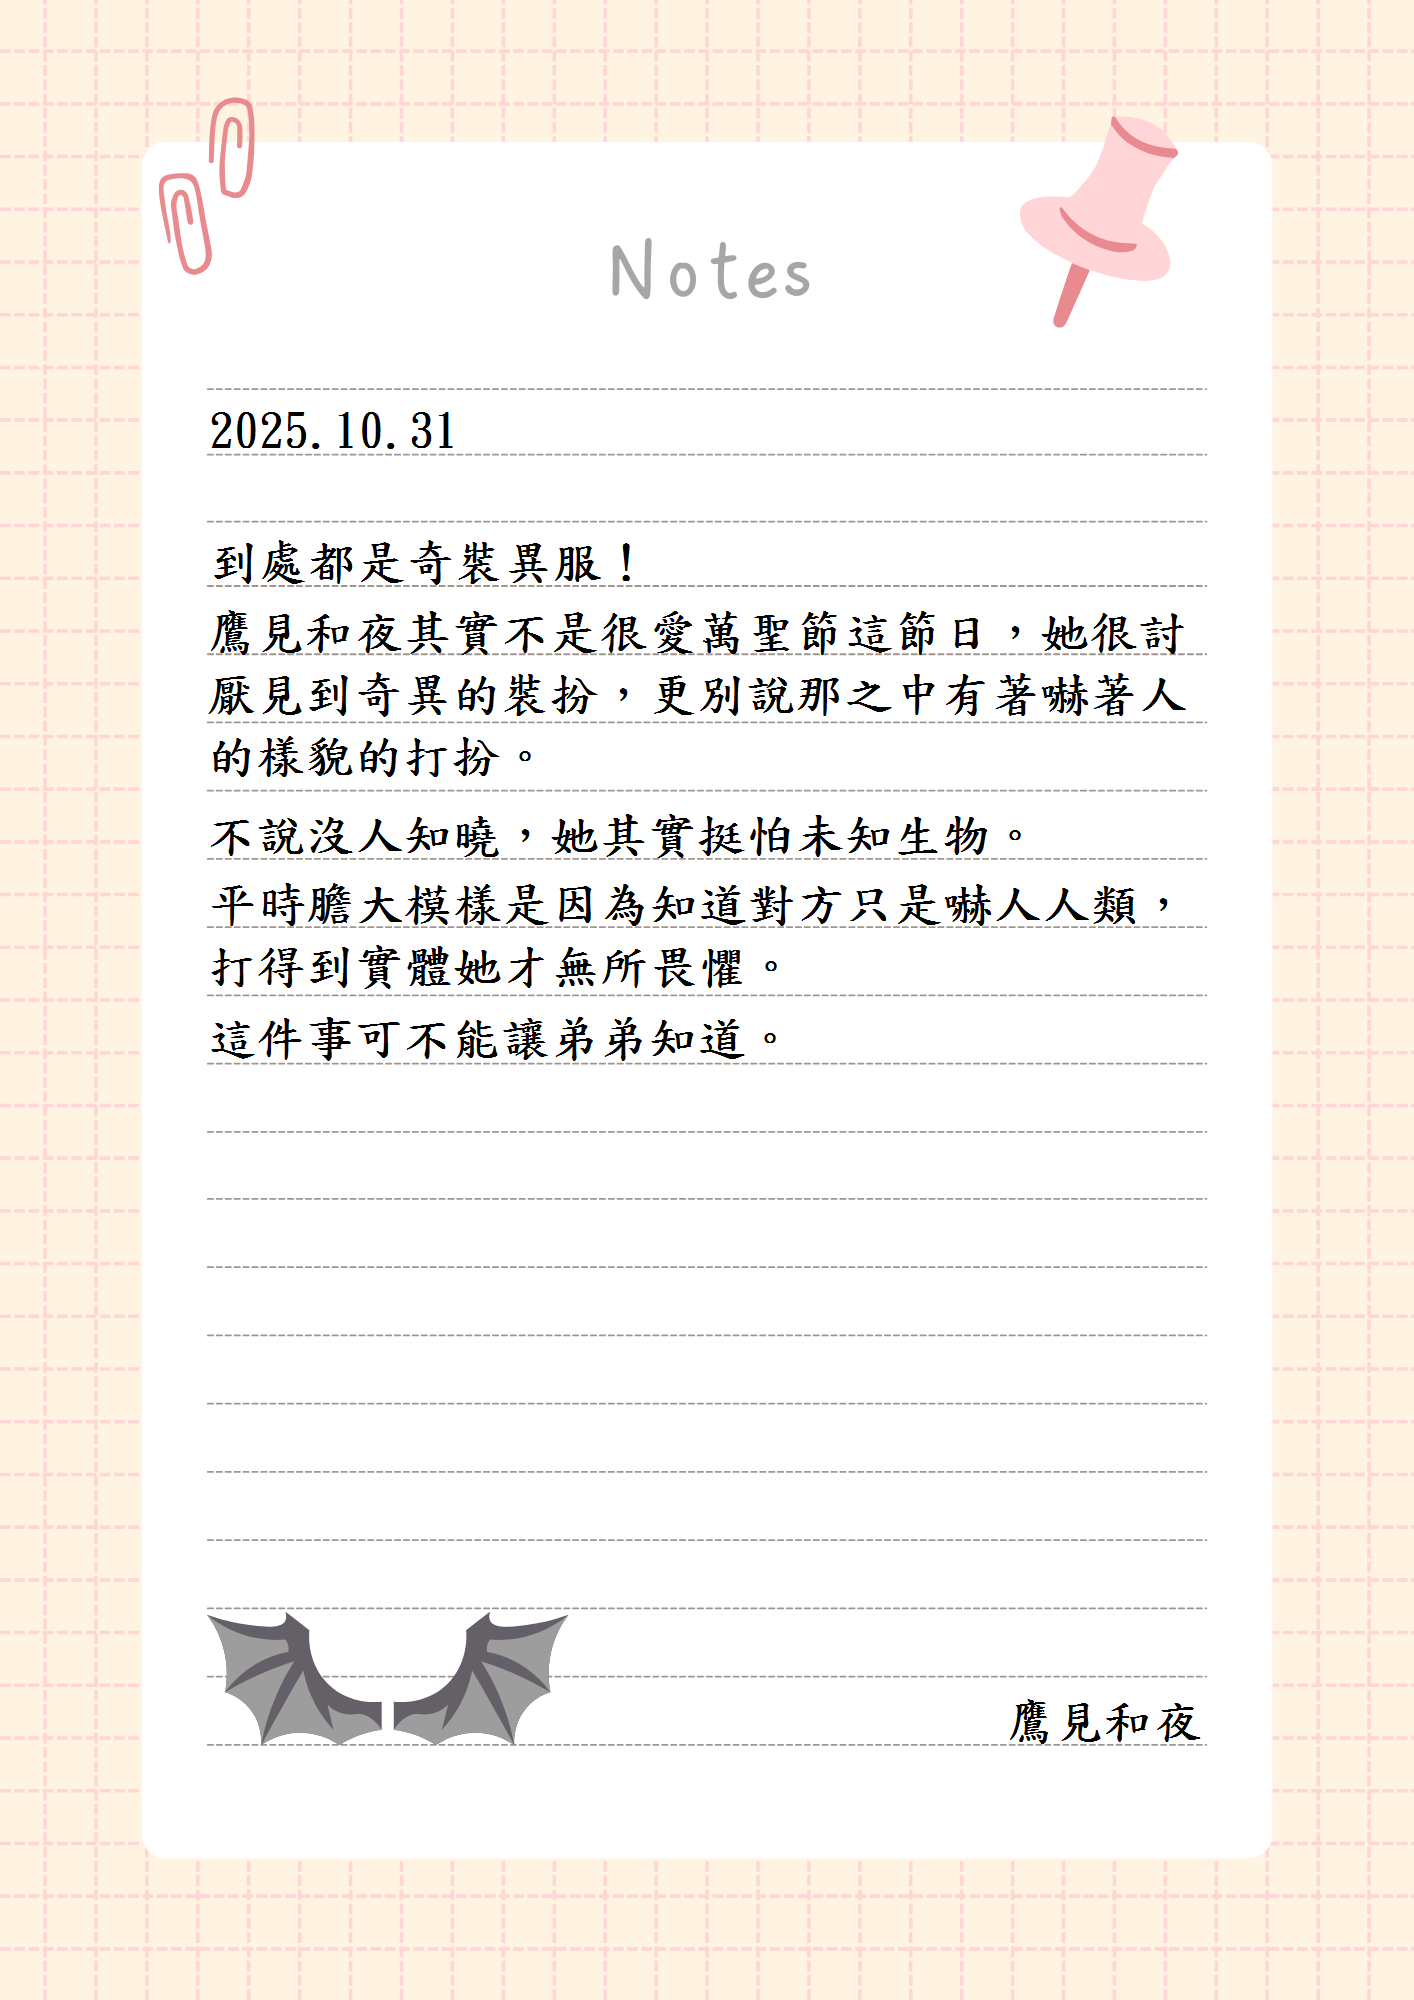 Notes
2025.10.31
到處都是奇裝異服！
鷹見和夜其實不是很愛萬聖節這節日，她很討
厭見到奇異的裝扮，更別說那之中有著嚇著人
的樣貌的打扮。
不說沒人知曉，她其實挺怕未知生物。
平時膽大模樣是因為知道對方只是嚇人人類，
打得到實體她才無所畏懼。
這件事可不能讓弟弟知道。
鷹見和夜